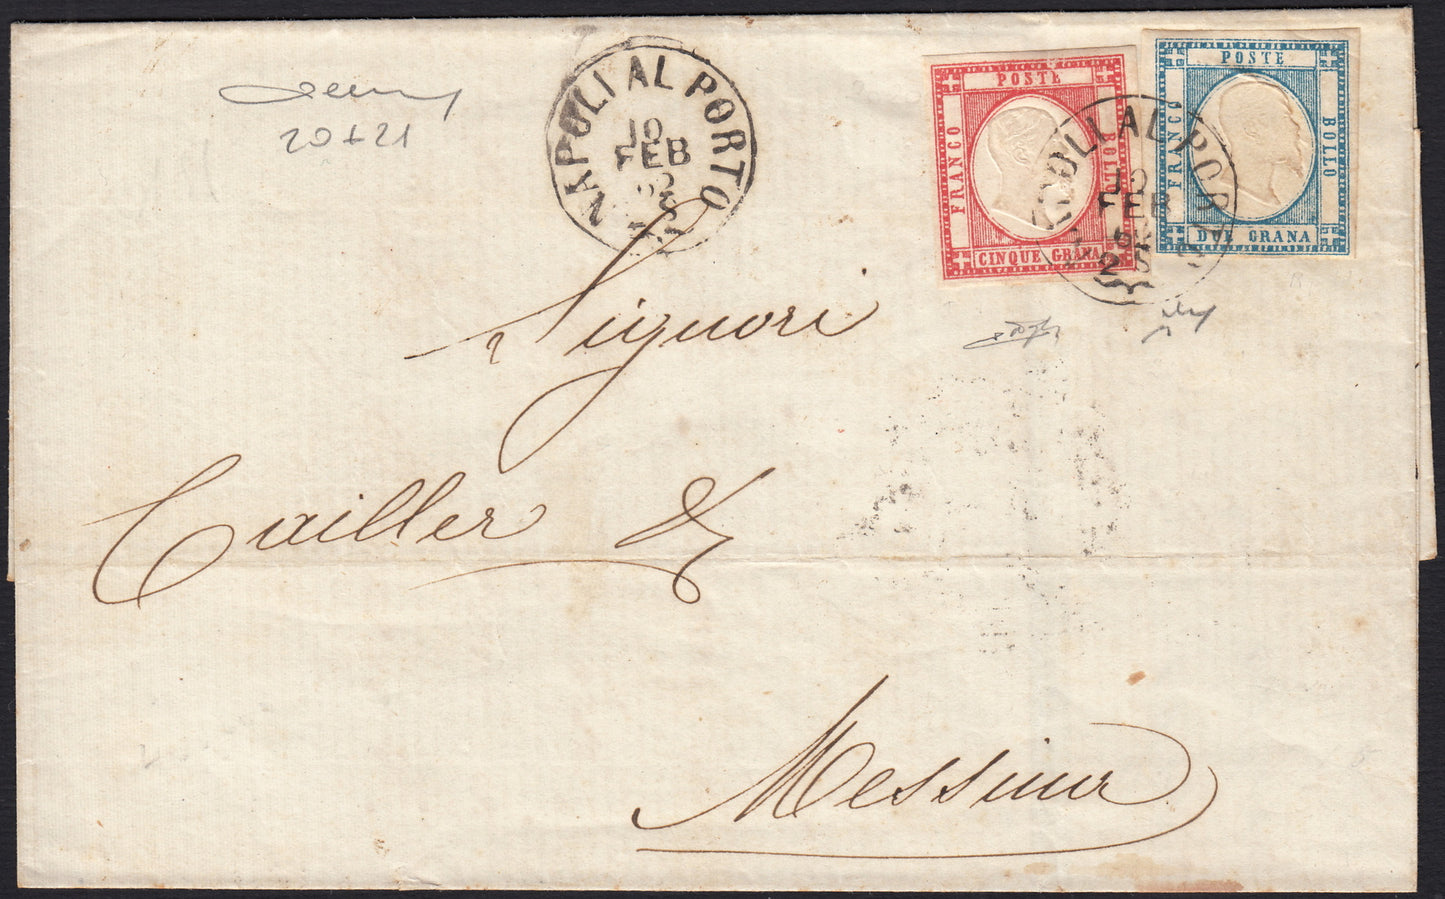 20+21
NAPOLI AL PORTO
10
FEB
62
POSTE
FRANCO
BOLLO
CINQUE GRANA
POSTE
FRANCO
BOLLO
DUE GRANA
NAPOLI AL PORTO
10
FEB
62
2S
Signori
Cailler &
Messina